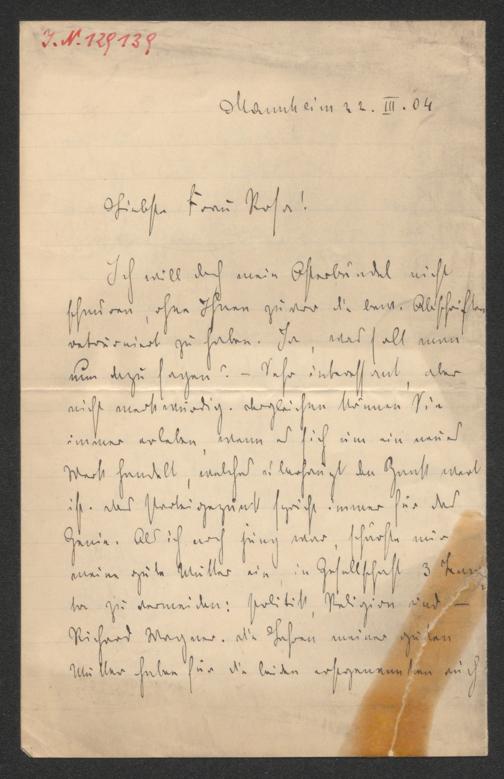 I. N. 129139
Mannheim 22. III. 04
Liebste Frau Rosa!
Ich will doch mein Osterbündel nicht
schnüren, ohne Ihnen zuvor die bew. Abschriften
retourniert zu haben. Ja, was soll man
nun dazu sagen? – Sehr interessant, aber
nicht merkwürdig. Dergleichen können Sie
immer erleben, wenn es sich um ein neues
Werk handelt, welches überhaupt den Zank wert
ist. Das Parteigezänk spricht immer für das
Genie. Als ich noch jung war, schärfte mir
meine gute Mutter ein, in Gesellschaft 3
zu vermeiden: Politik, Religion und –
Richard Wagner. Die Lehren meiner guten
Mutter haben für die beiden erstgenannten auch